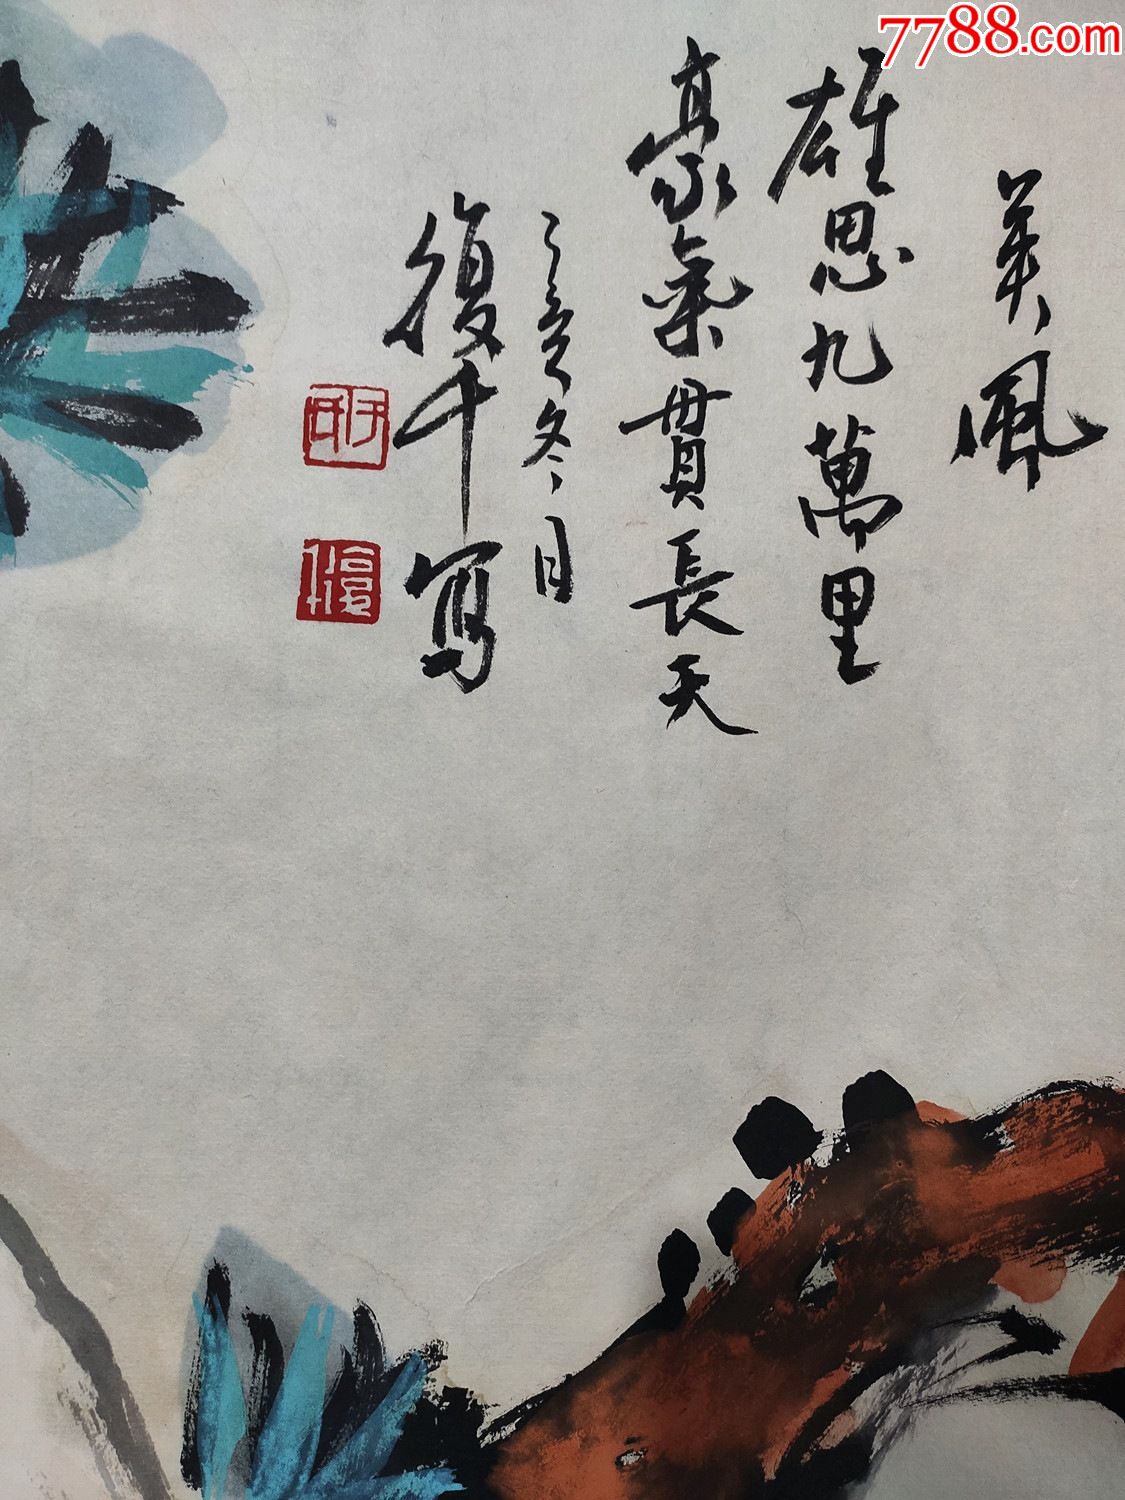 7788.com
英風
雄思九萬里
豪氣貫長天
辛亥冬月
復千寫